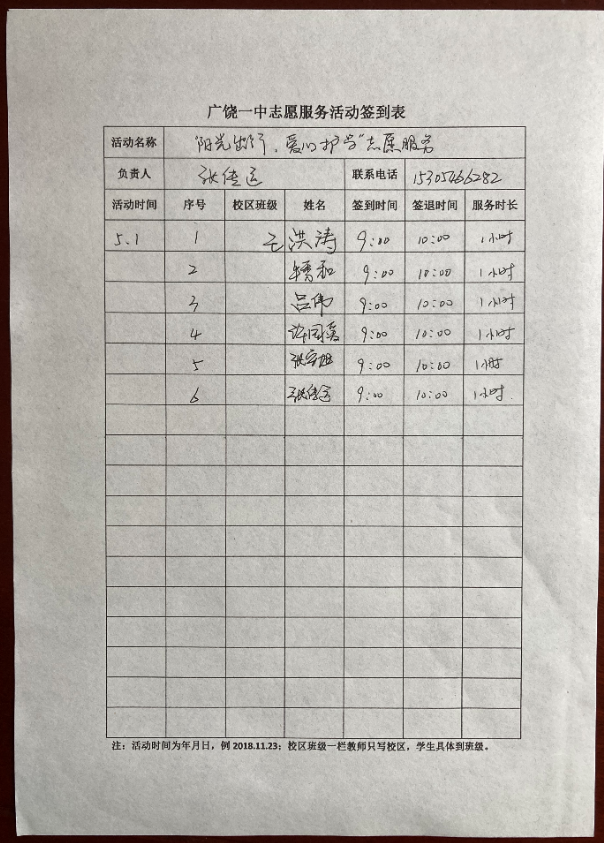 广饶一中志愿服务活动签到表
活动名称 "阳光出行，爱心护学"志愿服务
负责人 张传运 联系电话 15305466282
活动时间 序号 校区班级 姓名 签到时间 签退时间 服务时长
5.1 1 王洪涛 9:00 10:00 1小时
2 9:00 10:00 1小时
3 吕伟 9:00 10:00 1小时
4 9:00 10:00 1小时
5 9:00 10:00 1小时
6 张传运 9:00 10:00 1小时
注：活动时间为年月日，例2018.11.23；校区班级一栏教师只写校区，学生具体到班级。